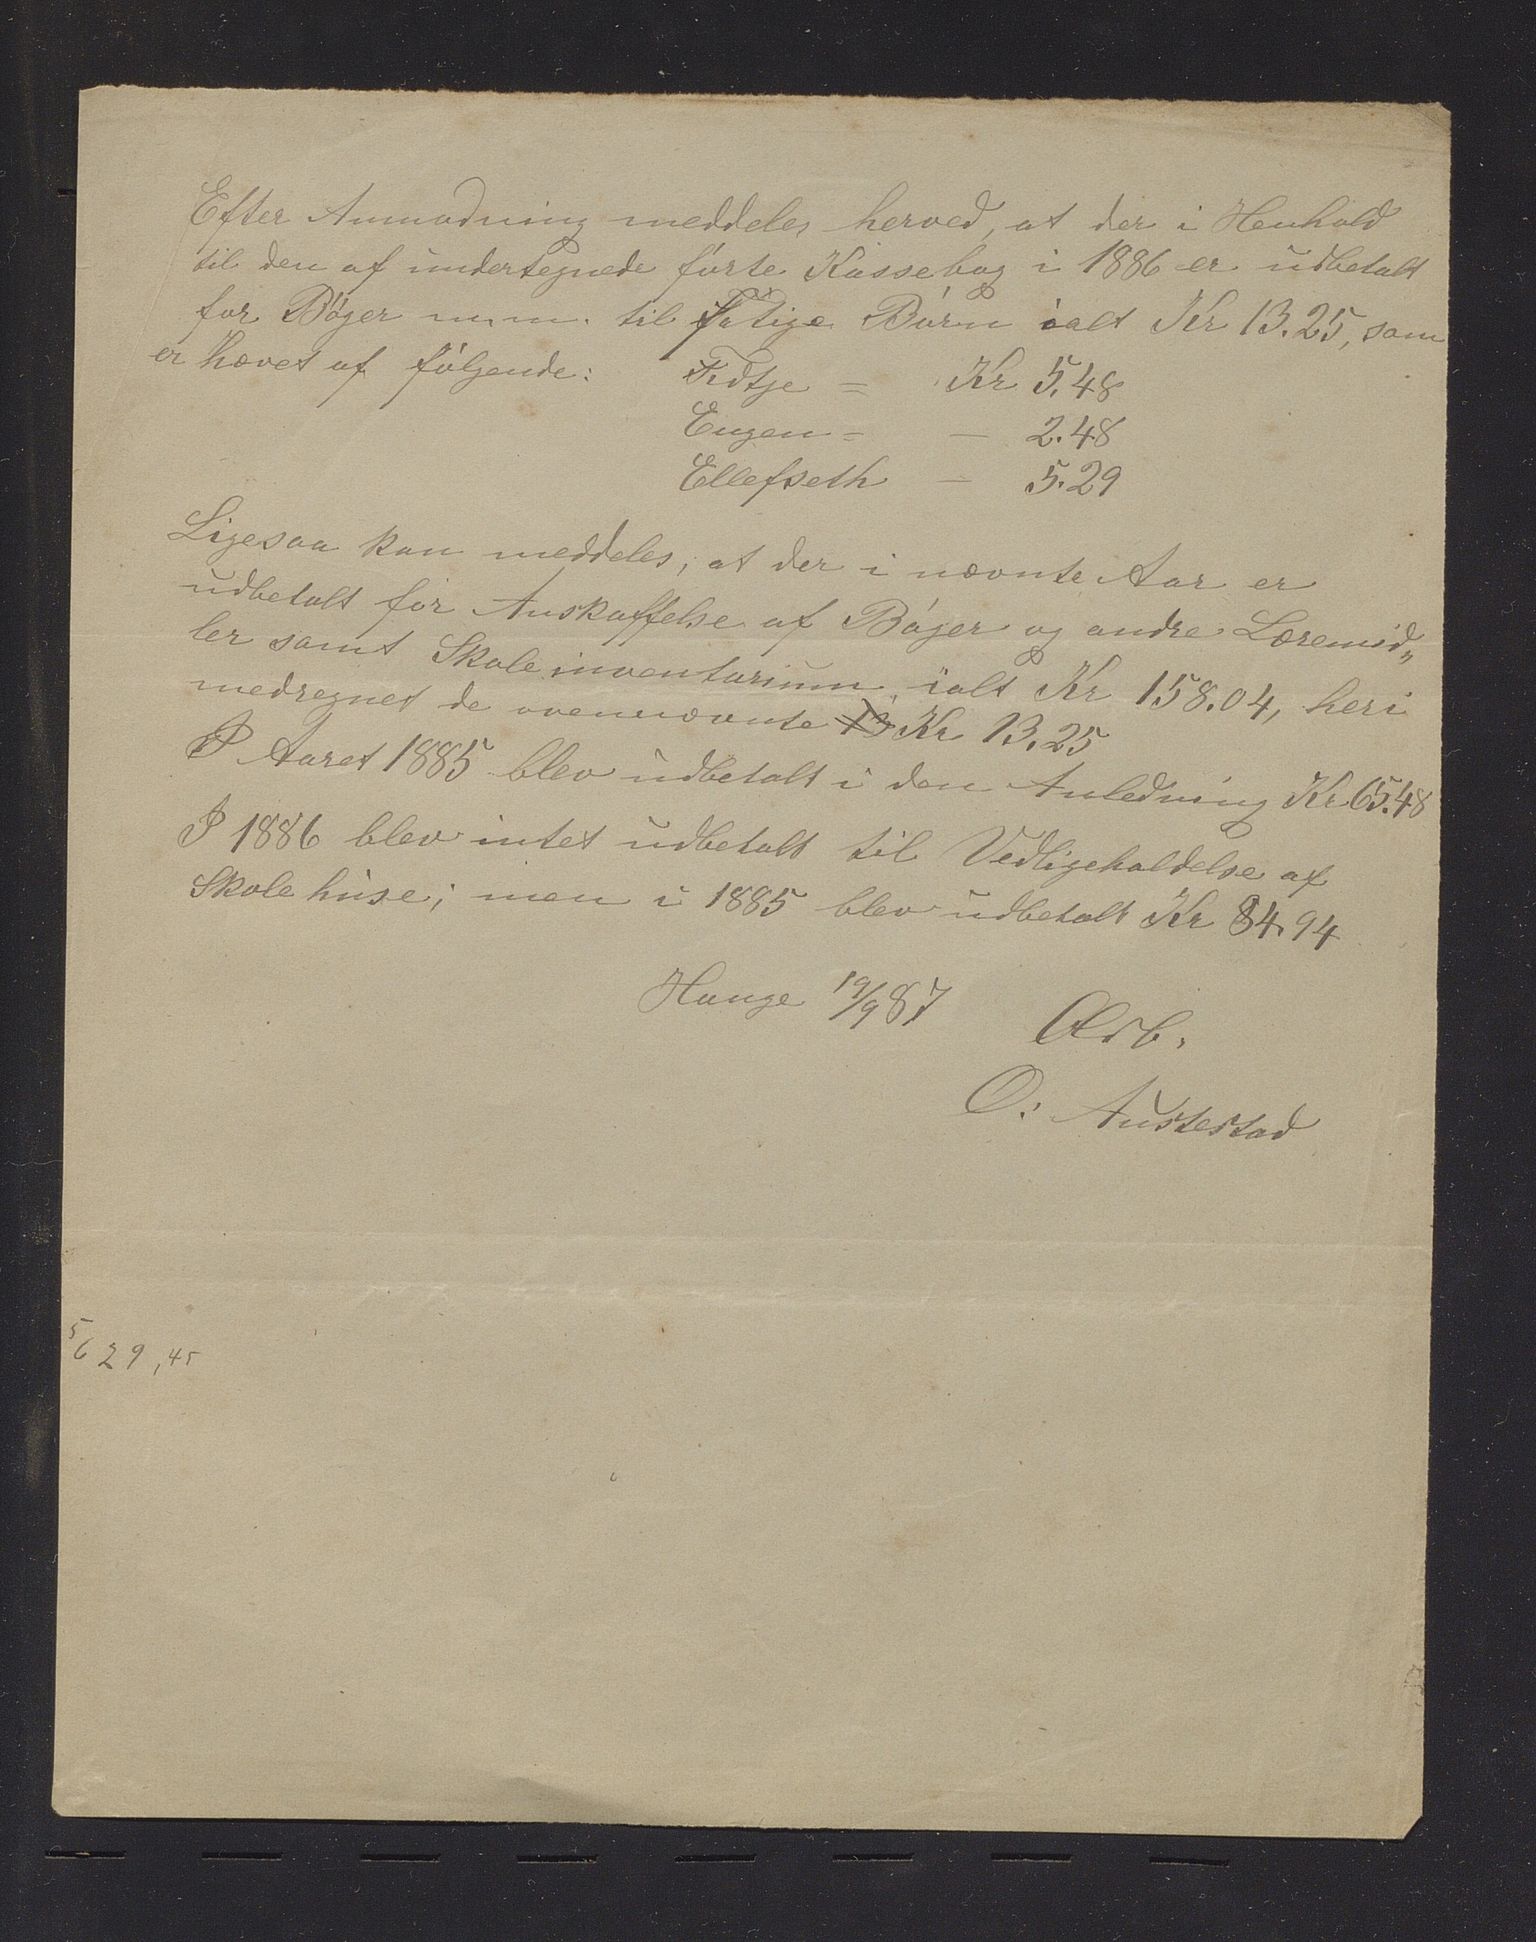 Efter Anmodning meddeles herved, at der i Henhold
til den af undertegnede førte Kassebog i 1886 er udbetalt
for Bøger m.m. til fatige Børn ialt Kr 13.25, som
er hævet af følgende: Fidtje = Kr 5.48
Eugen = — 2.48
Ellefseth — 5.29
Ligesaa kan meddeles, at der i nævnte Aar er
udbetalt for Anskaffelse af Bøger og andre Læremid„
ler samt Skoleinventarium ialt Kr 158.04, heri
medregnet de ovennævnte Kr 13.25
I Aaret 1885 blev udbetalt i den Anledning Kr 65.48
I 1886 blev intet udbetalt til Vedligeholdelse af
Skolehuse; men i 1885 blev udbetalt Kr 84.94
Hauge 19/9 87
Ærb.
O. Austestad
5
629,45